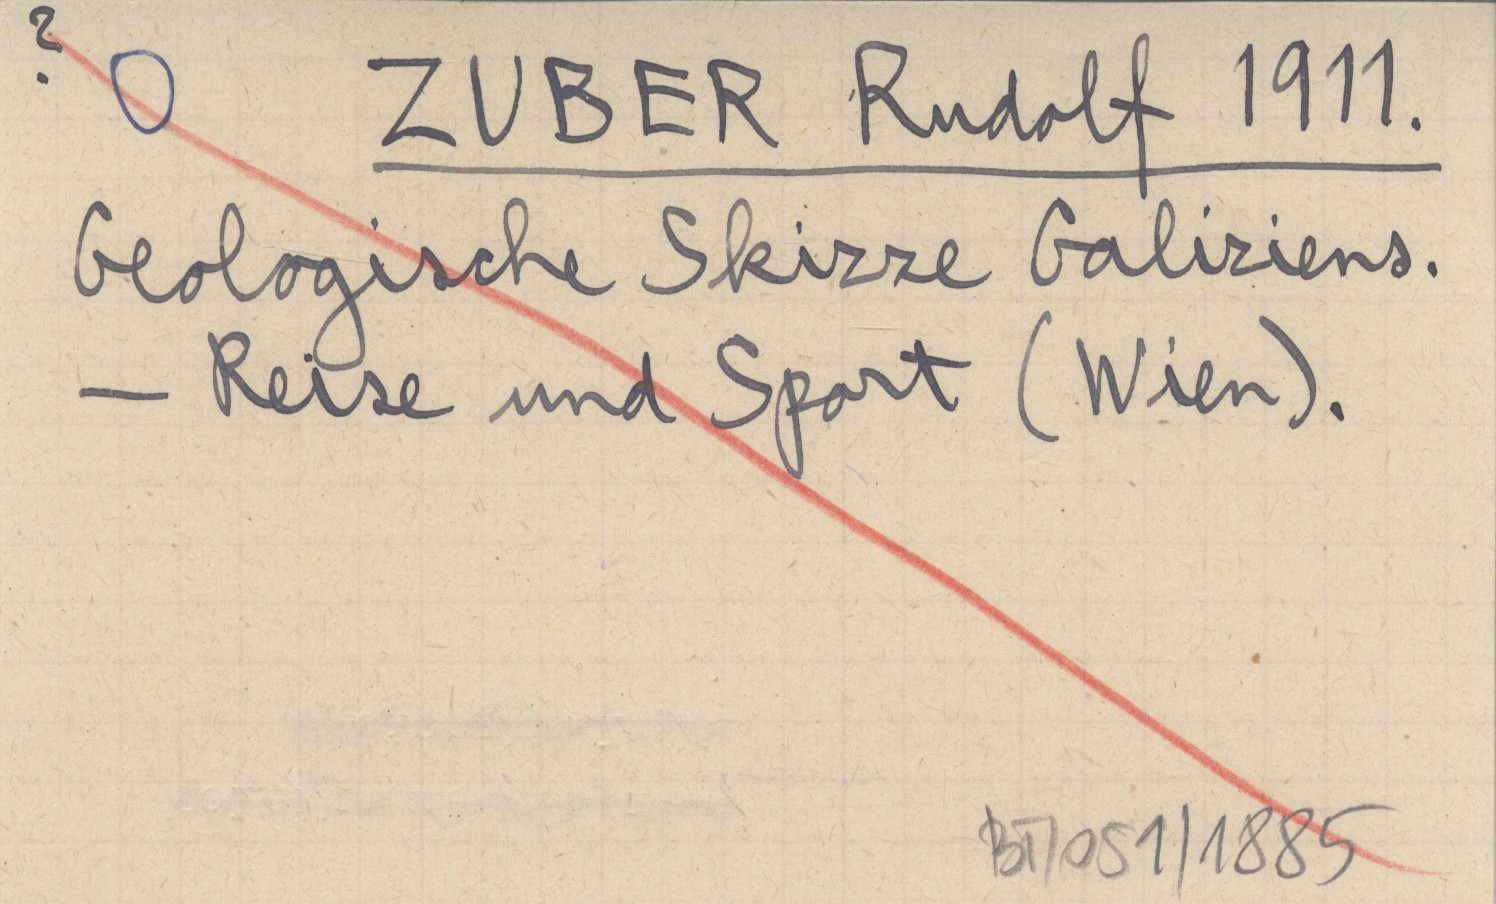 ?
O ZUBER Rudolf 1911.
Geologische Skizze Galiziens.
— Reise und Sport (Wien).
BT/051/1885